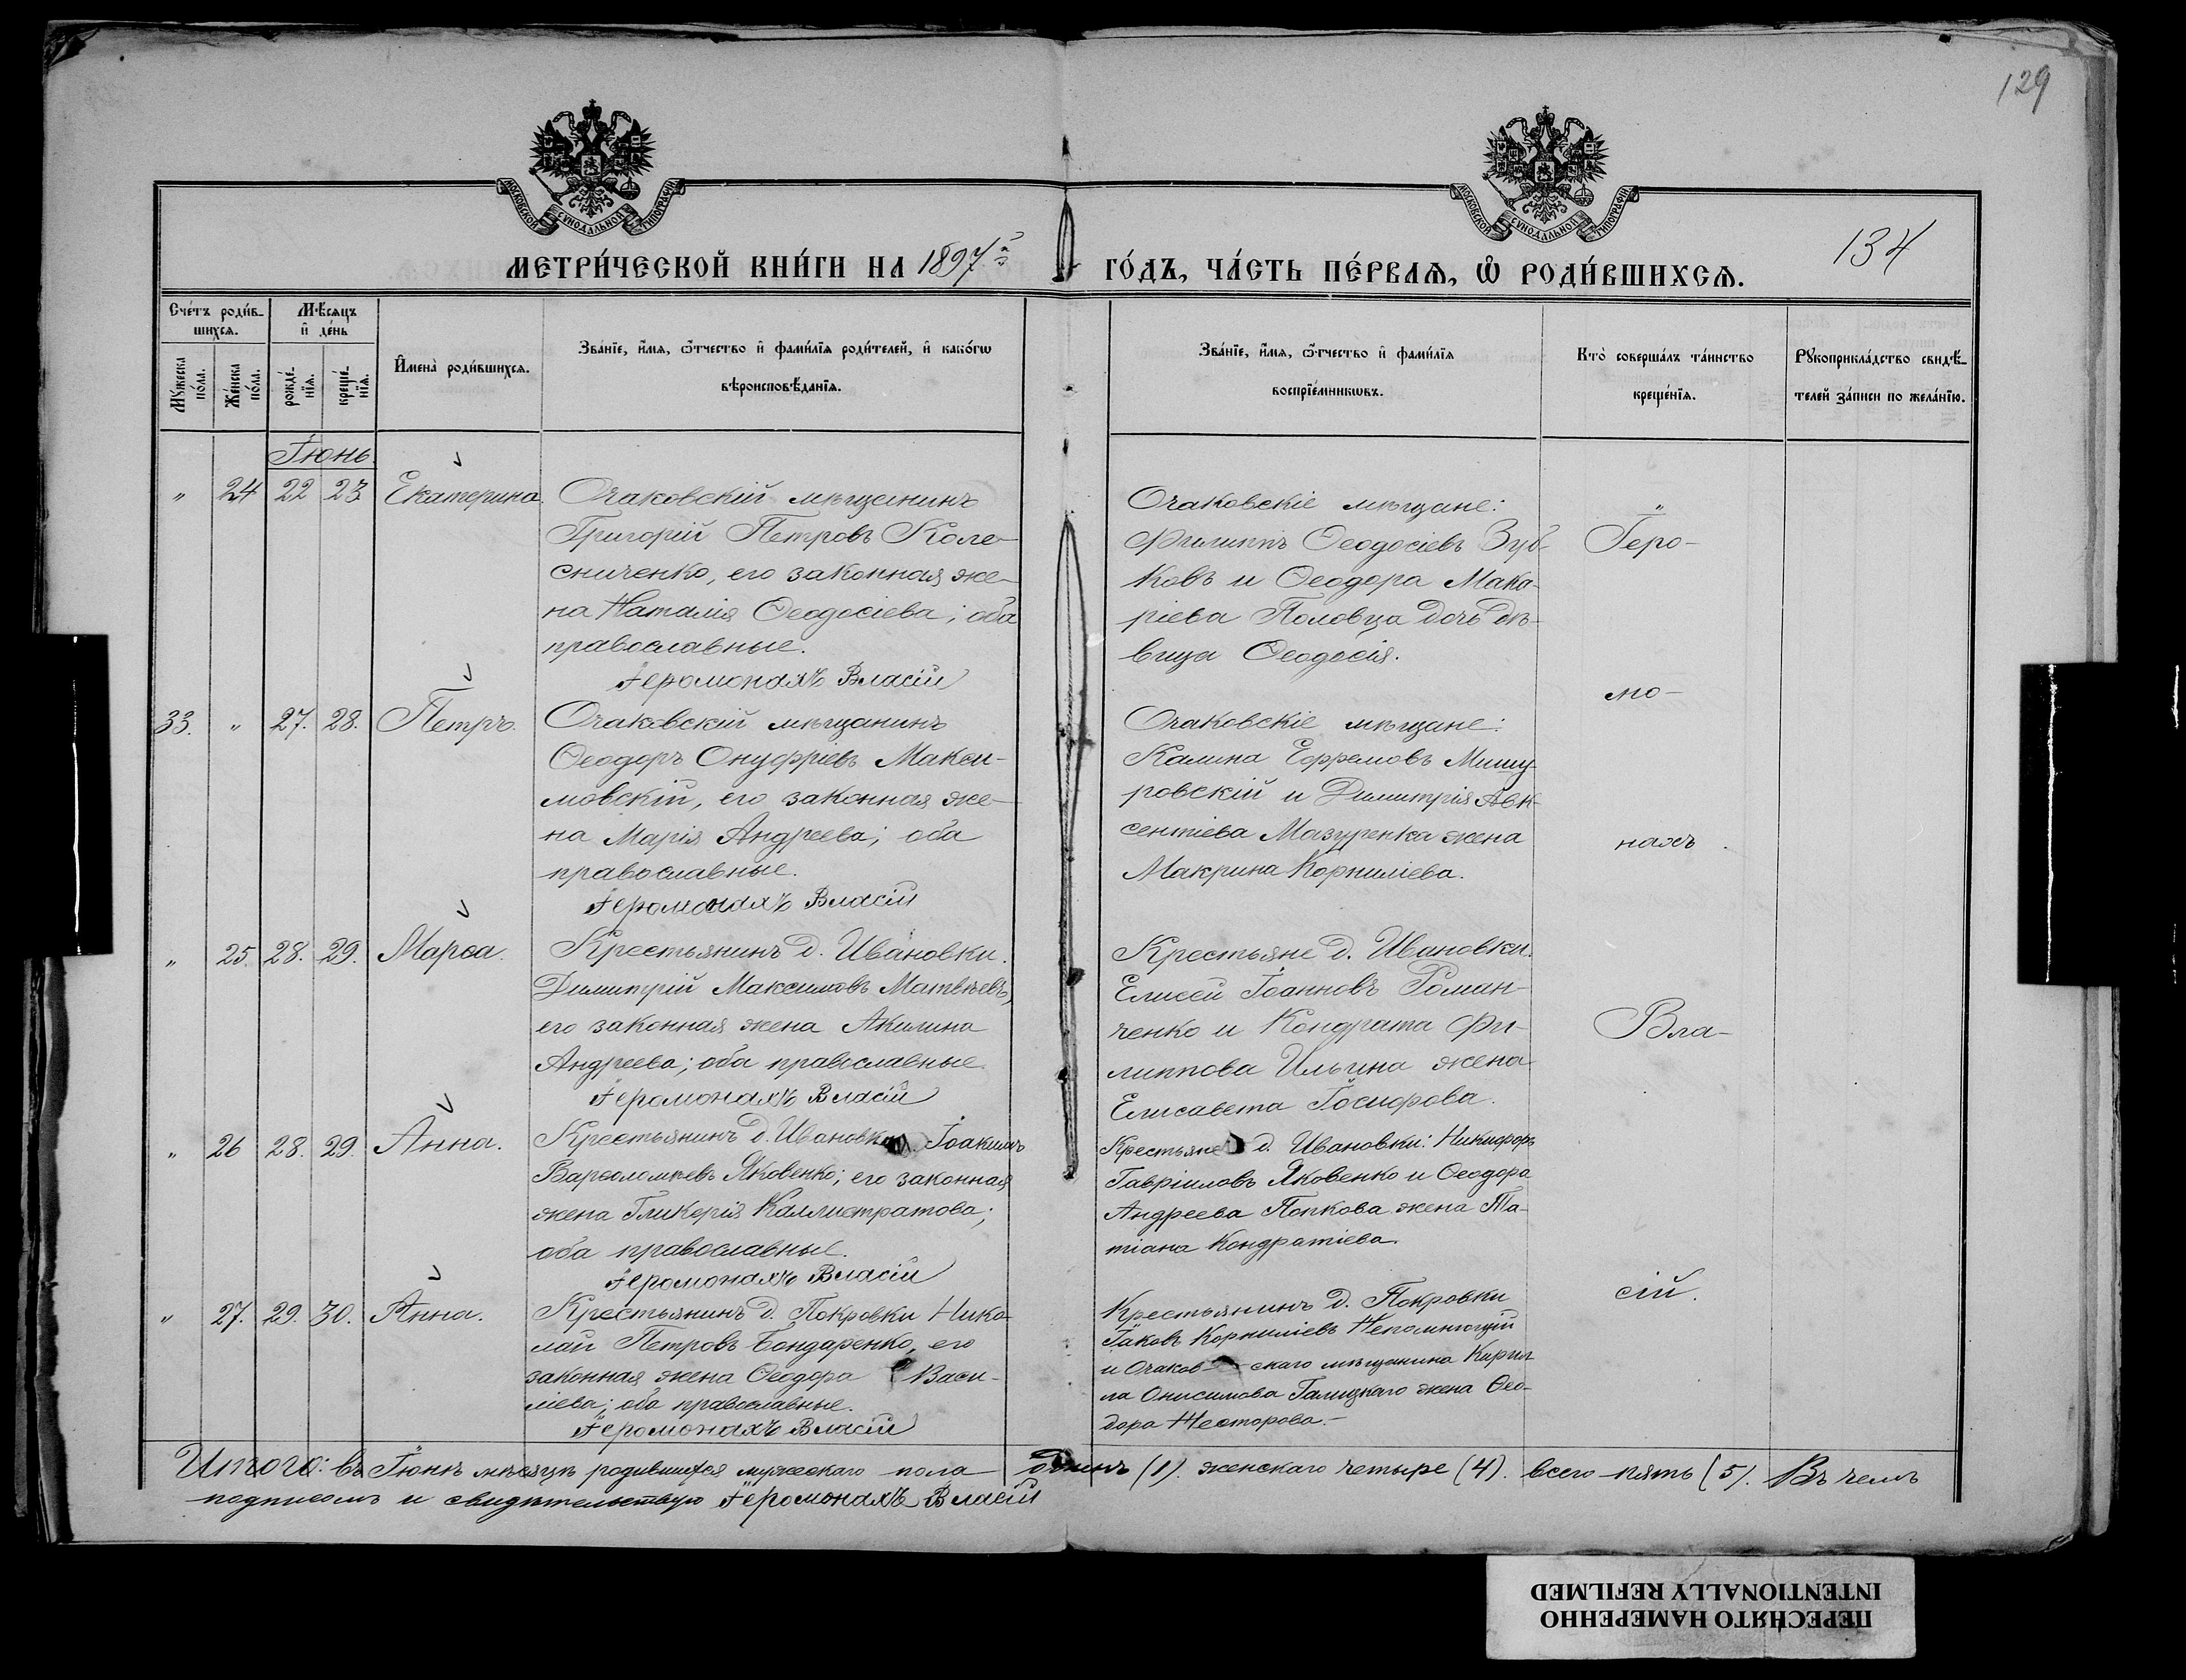 129
МОСКОВСКОЙ СѴНОДАЛЬНОЙ ТИПОГРАФІИ
МОСКОВСКОЙ СѴНОДАЛЬНОЙ ТИПОГРАФІИ
134
МЕТРИ́ЧЕСКОЙ КНИ́ГИ НА 1897й
ГО́ДЪ, ЧА́СТЬ ПЕ́РВАѦ, Ѽ РОДИ́ВШИХСѦ.
Сче́тъ роди́в-
шихсѧ.
Мꙋ́жеска
по́ла.
Же́нска
по́ла.
Мѣ́сѧцъ
и҆ де́нь
рожде́-
нїѧ.
креще́-
нїѧ.
И҆мена̀ роди́вшихсѧ.
Зва́нїе, и҆́мѧ, ѻ҆́тчество и҆ фами́лїѧ роди́телей, и҆ како́гѡ
вѣроисповѣ́данїѧ.
Зва́нїе, и҆́мѧ, ѻ҆́тчество и҆ фами́лїѧ
воспрїе́мникѡвъ.
Кто̀ соверша́лъ та́инство
креще́нїѧ.
Рꙋкоприкла́дство свидѣ́-
телей за́писи по жела́нїю.
Іюнь.
" 24 22 23 Екатерина.
Очаковскій мѣщанинъ
Григорій Петровъ Коле-
сниченко, его законная же-
на Наталія Ѳеодосіева; оба
православные.
Іеромонахъ Власій
Очаковскіе мѣщане:
Филиппъ Ѳеодосіевъ Зуб-
ковъ и Ѳеодора Мака-
ріева Половца дочь дѣ-
вица Ѳеодосія.
33. " 27. 28. Петръ.
Очаковскій мѣщанинъ
Ѳеодоръ Онуфріевъ Макси-
мовскій, его законная же-
на Марія Андреева; оба
православные.
Іеромонахъ Власій
Очаковскіе мѣщане:
Калина Ефремовъ Мишу-
ровскій и Димитрія Авк-
сентіева Мазуренка жена
Макрина Корниліева.
" 25. 28. 29. Марѳа.
Крестьянинъ д. Ивановки.
Димитрій Максимовъ Матвѣевъ,
его законная жена Акилина
Андреева; оба православные
Іеромонахъ Власій
Крестьяне д. Ивановки.
Елисей Іоанновъ Роман-
ченко и Кондрата Фи-
липпова Ильина жена
Елисавета Іосифова.
" 26 28. 29. Анна.
Крестьянинъ д. Ивановки. Іоакимъ
Варѳоломѣевъ Яковенко; его законная
жена Гликерія Каллистратова;
оба православные.
Іеромонахъ Власій
Крестьяне д. Ивановки: Никифоръ
Гавріиловъ Яковенко и Ѳеодора
Андреева Попкова жена Та-
тіана Кондратіева.
" 27. 29. 30. Анна.
Крестьянинъ д. Покровки Нико-
лай Петровъ Бондаренко, его
законная жена Ѳеодора Васи-
ліева; оба православные.
Іеромонахъ Власій
Крестьянинъ д. Покровки
Іаковъ Корниліевъ Непомнющій
и Очаков- скаго мѣщанина Кирил-
ла Онисимова Галицкаго жена Ѳео-
дора Несторова.-
Іеро-
мо-
нахъ
Вла-
сій.
Итого: въ Іюнѣ мѣсяцѣ родившихся мужескаго пола одинъ (1). женскаго четыре (4). всего пять (5). Въ чемъ
подписомъ и свидѣтельствую Іеромонахъ Власій
ПЕРЕСНЯТО НАМЕРЕННО
INTENTIONALLY REFILMED